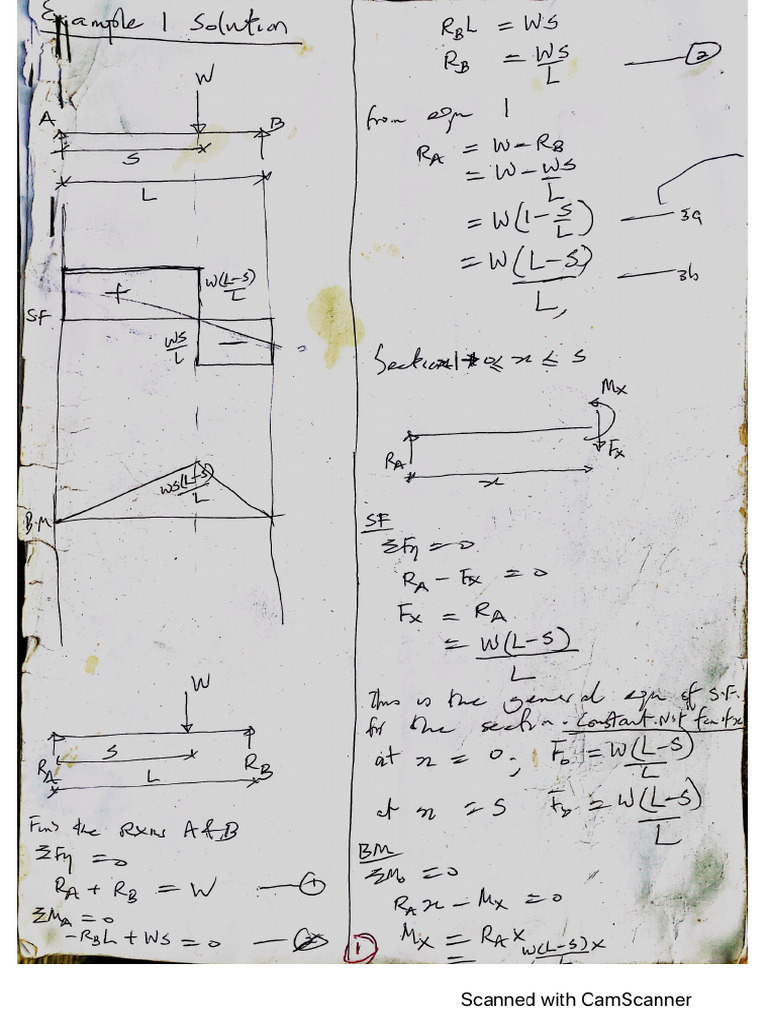 Example 1 Solution
W
A
B
S
L
+
W(L-S)/L
SF
WS/L
−
WS(L-S)/L
B.M
W
S
RA
L
RB
Find the Rxns A & B
ΣFy = 0
RA + RB = W —— ①
ΣMA = 0
-RBL + WS = 0 —— ②
RBL = WS
RB = WS/L —— ②
from eqn 1
RA = W - RB
= W - WS/L
= W(1 - S/L) —— 3a
= W(L-S)/L, —— 3b
Section 1 0 ≤ x ≤ S
Mx
RA
Fx
x
SF
ΣFy = 0
RA - Fx = 0
Fx = RA
= W(L-S)/L
This is the general eqn of S.F.
for the section. Constant. Not fxn of x
at x = 0, Fo = W(L-S)/L
at x = S = W(L-S)/L
BM
ΣMo = 0
RAx - Mx = 0
①
Mx = RAx
= W(L-S)x/L
Scanned with CamScanner